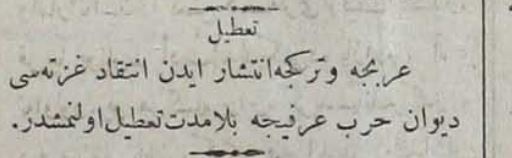 تعطیل
عربجه وتركجه انتشار ایدن انتقاد غزته‌سی
دیوان حرب عرفیجه بلامدت تعطیل اولنمشدر.